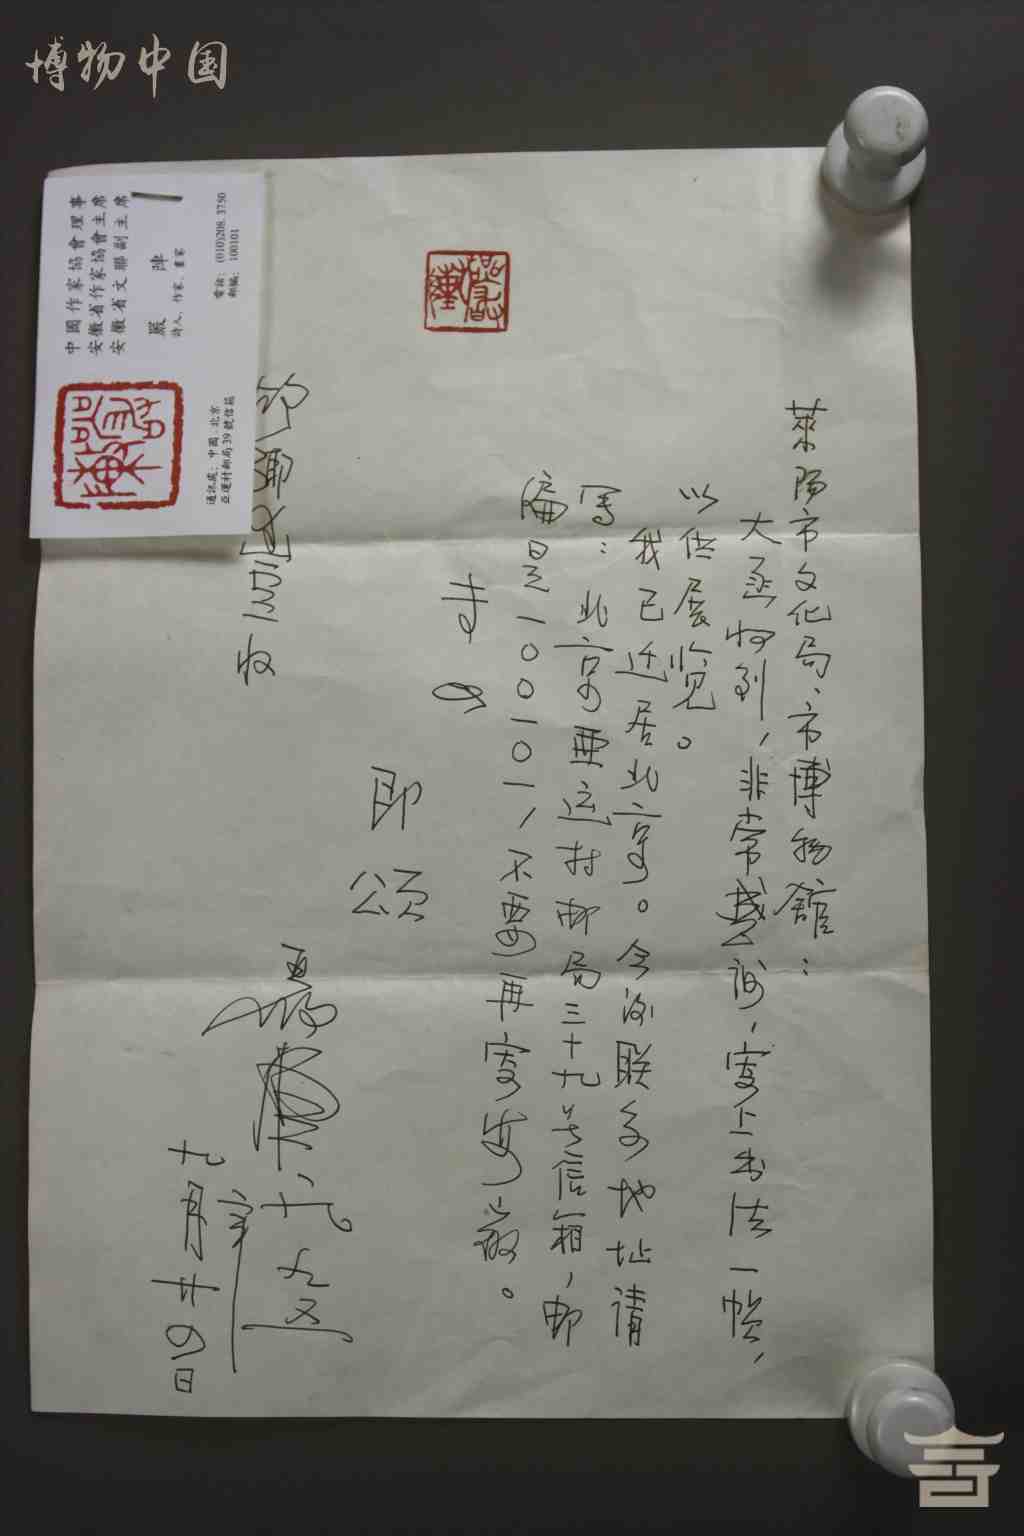 博物中国
中國作家協會理事
安徽省作家協會主席
安徽省文聯副主席
嚴 陣
詩人、作家、畫家
通訊處：中國·北京
亞運村郵局39號信箱
電話：(010)208.3750
郵編：100101
莱阳市文化局、市博物馆：
大函收到，非常感谢，寄上书法一帧，
以供展览。
我已迁居北京。今后联系地址请
写：北京亚运村邮局三十九号信箱，邮
编是一〇〇一〇一，不要再寄安徽。
即颂
九月廿四日